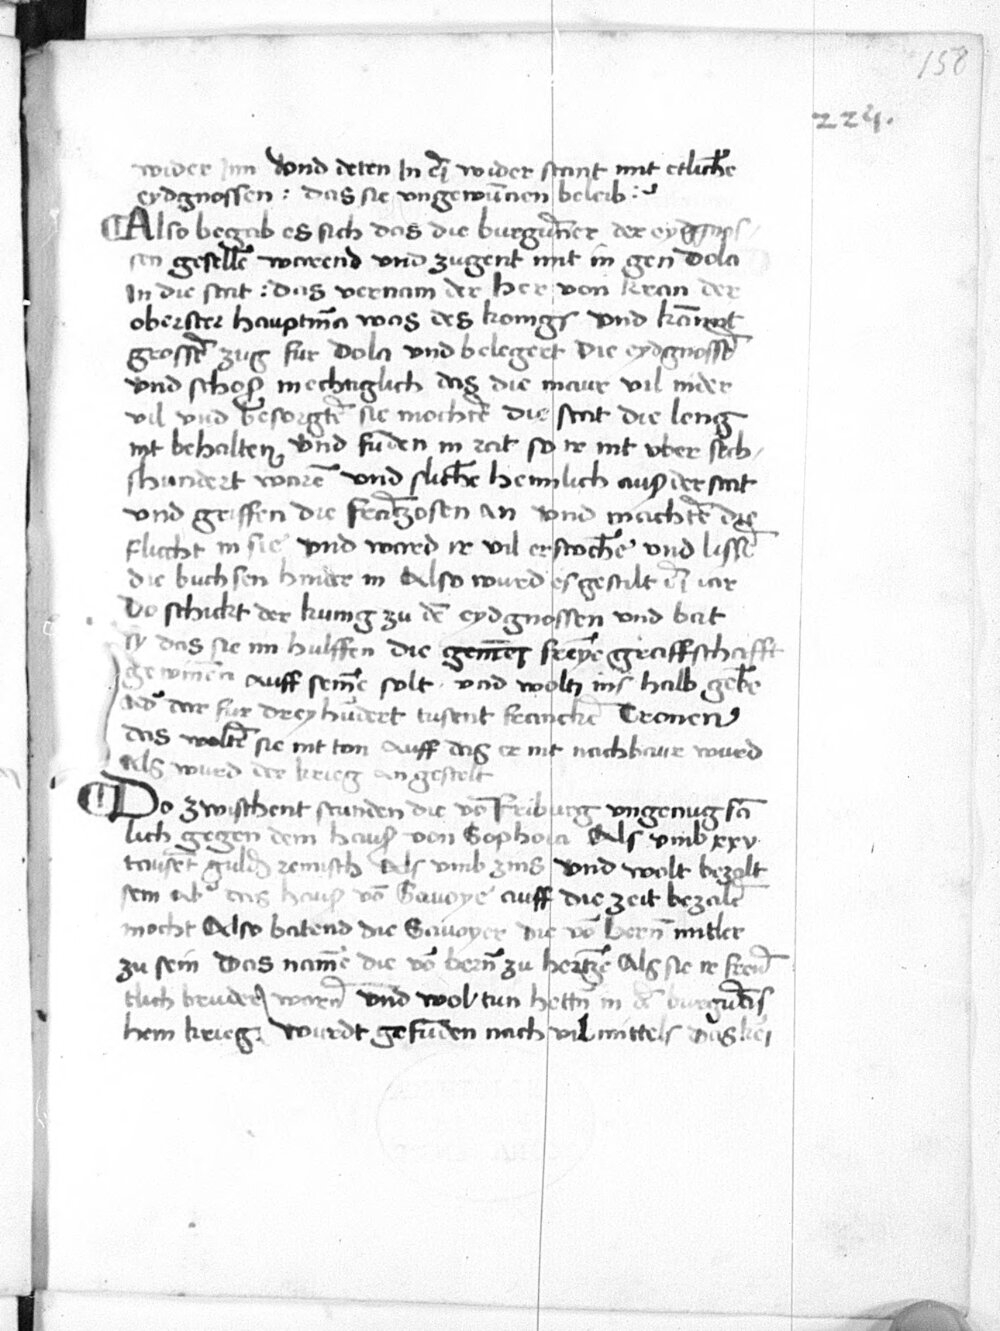 158
224.
wider Inn Vnd deten In ein wider stant mit etlichē
eydgnossen : das sie vngewūnen beleib :
Also begab es sich das die burgūner der eydgnos
sen gesellē warend vnd zugent mit in gen Dola
In die stat : das vernam der her von kran der
oberster hauptmā was des konigs vnd kā mit
grossē zug fur Dola vnd belegert Die eydgnossē
vnd schoß mechtiglich das die maur vil nider
vil vnd besorgtē sie mochtē die stat die leng
nit behalten Vnd fūden in rat so ir nit vber sech
shundert warē vnd slichē heimlich auß der stat
vnd griffen die frāczosen an vnd machtē die
flucht in sie vnd ward ir vil erstochē vnd lissē
die buchsen hinder in Also wurd es gestilt ī iar
Do schickt der kunig zu dē eydgnossen vnd bat
sy das sie im hulffen die graffschafft
gewinnen auff seinē solt vnd wolt ins halb gebē
adˀ dar fur drey hūdert tusent franckē Cronen
das woltē sie nit ton auff das er nit nachbaur wurd
Als wurd der krieg an gestelt
Do zwischent stunden die vō Friburg vngenugsā
lich gegen dem hauß von Sophoia Als vmb xxv
tausēt guldē reinisch Als vmb zins vnd wolt bezalt
sein abˀ das hauß vō Sauoye auff die zeit bezalē
mocht Also batend die Sauoyer die vō bern mitler
zu sein Das namē die vō bern zu hertzē Als sie ir freūt
tlich bruder warē vnd wol tun hettn in dē burgūdis
hem krieg wurdt gefūden nach vil mittels das kei